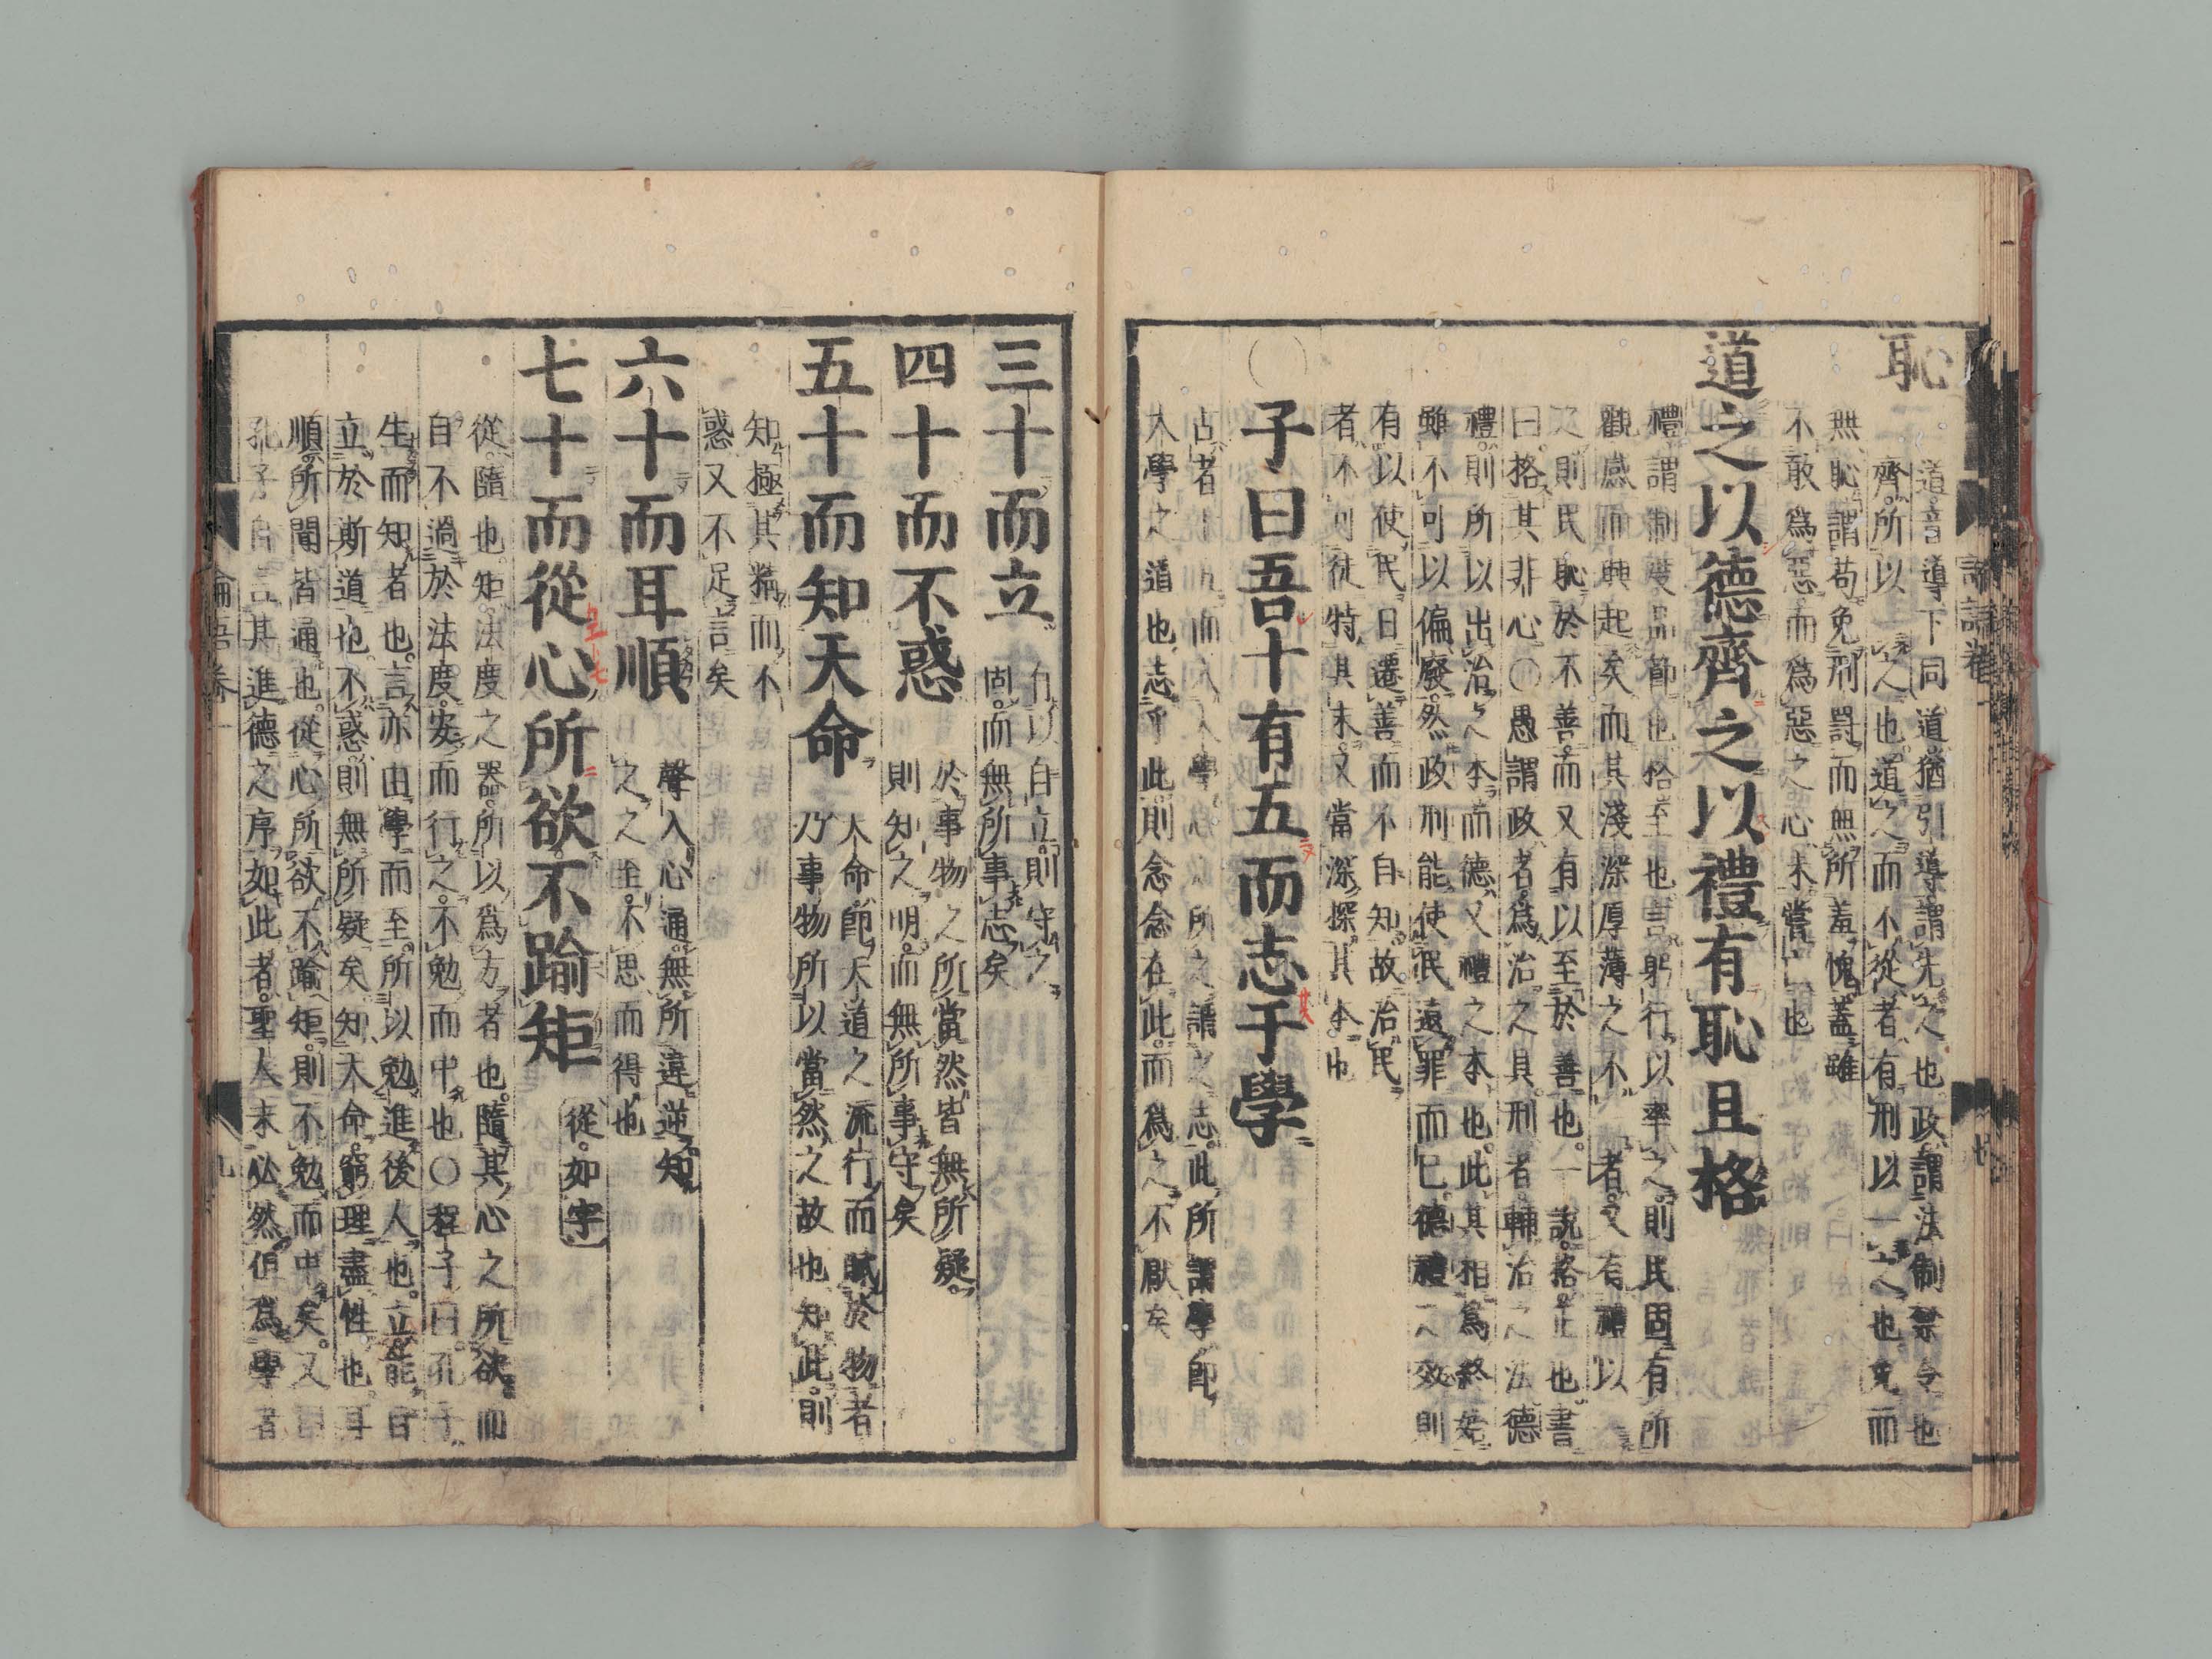 恥
道音導下同道猶引導謂先之也政謂法制禁令也
齊所以一之也道之而不從者有刑以一之也免而
無恥謂苟免刑罰而無所羞愧蓋雖
不敢爲惡而爲惡之心未嘗亡也
道之以德齊之以禮有恥且格
禮謂制度品節也格至也言躬行以率之則民固有所
觀感而興起矣而其淺深厚薄之不一者又有禮以一
之則民恥於不善而又有以至於善也一說格正也書
曰格其非心○愚謂政者爲治之具刑者輔治之法德
禮則所以出治之本而德又禮之本也此其相爲終始
雖不可以偏廢然政刑能使民遠罪而已德禮之效則
有以使民日遷善而不自知故治民
者不可徒恃其末又當深探其本也
○子曰吾十有五而志于學
古者十五而入大學心之所之謂之志此所謂學即
大學之道也志乎此則念念在此而爲之不厭矣
三十而立
有以自立則守之
固而無所事志矣
四十而不惑
於事物之所當然皆無所疑
則知之明而無所事守矣
五十而知天命
天命即天道之流行而賦於物者
乃事物所以當然之故也知此則
知極其精而不
惑又不足言矣
六十而耳順
聲入心通無所違逆知
之之至不思而得也
七十而從心所欲不踰矩
從如字
從隨也矩法度之器所以爲方者也隨其心之所欲而
自不過於法度安而行之不勉而中也○程子曰孔子
生而知者也言亦由學而至所以勉進後人也立能自
立於斯道也不惑則無所疑矣知天命窮理盡性也耳
順所聞皆通也從心所欲不踰矩則不勉而中矣又曰
孔子自言其進德之序如此者聖人未必然但爲學者
論語卷一
九